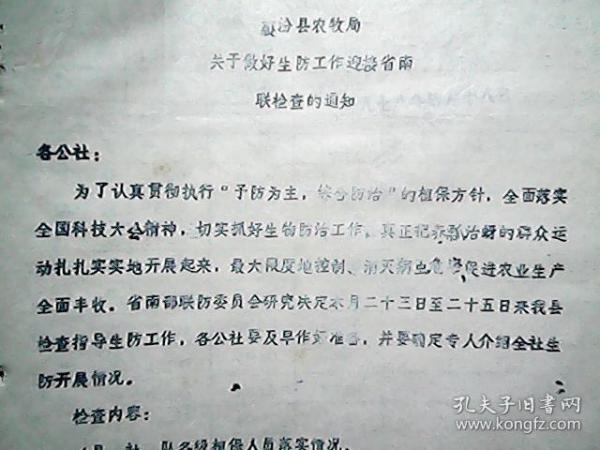 汾县农牧局
关于做好生防工作迎接省南
联检查的通知
各公社：
为了认真贯彻执行“予防为主，综合防治”的植保方针，全面落实
全国科技大会精神，切实抓好生物防治工作，真正把养瓢治蚜的群众运
动扎扎实实地开展起来，最大限度地控制、消灭病虫危害促进农业生产
全面丰收。省南部联防委员会研究决定本月二十三日至二十五日来我县
检查指导生防工作，各公社要及早作好准备，并要确定专人介绍全社生
防开展情况。
检查内容：
县、社、队各级植保人员落实情况。
孔夫子旧书网
www.kongfz.com